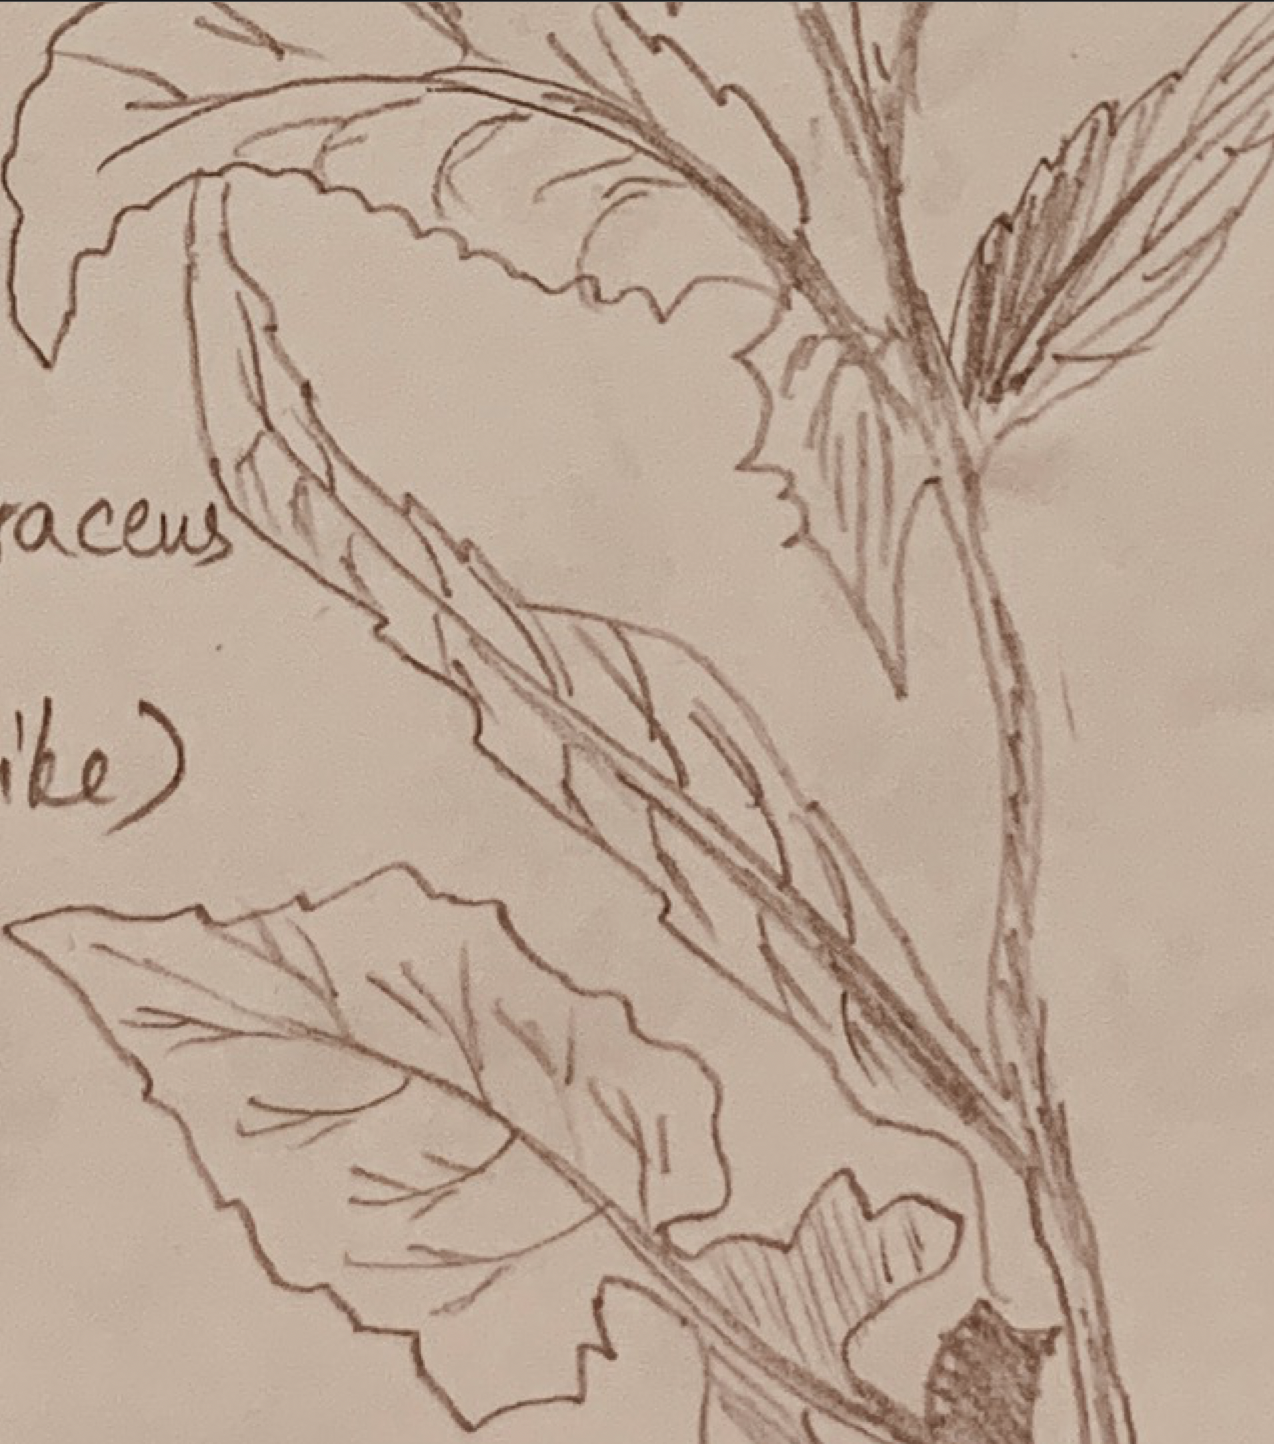 raceus
ike)